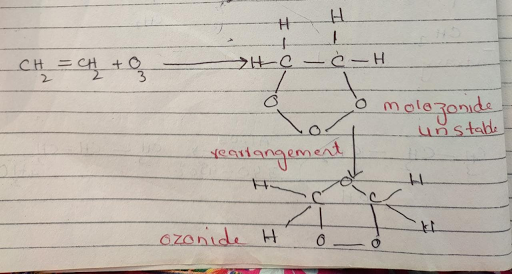 H H
CH2 = CH2 + O3 → H - C - C - H
O O molozonide
O unstable
rearrangement
H O H
C C
ozonide H O - O H